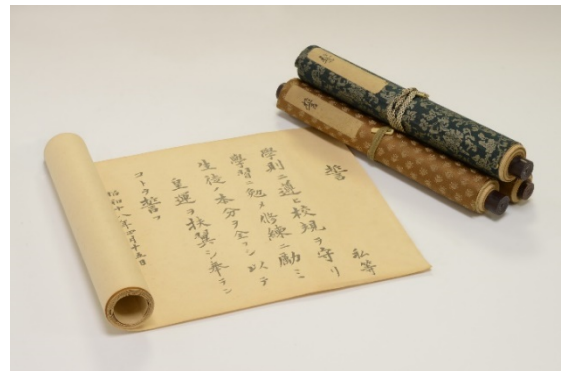 誓
私等
學則ニ遵ヒ校規ヲ守リ
學習ニ勉メ修練ニ勵ミ
生徒ノ本分ヲ全テシ以テ
皇運ヲ扶翼シ奉ラン
コトヲ誓フ
昭和十八年四月十五日
誓